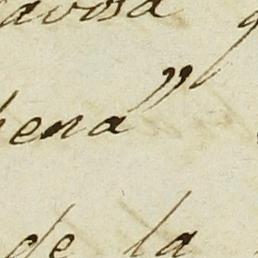 avosa
hena"
de la